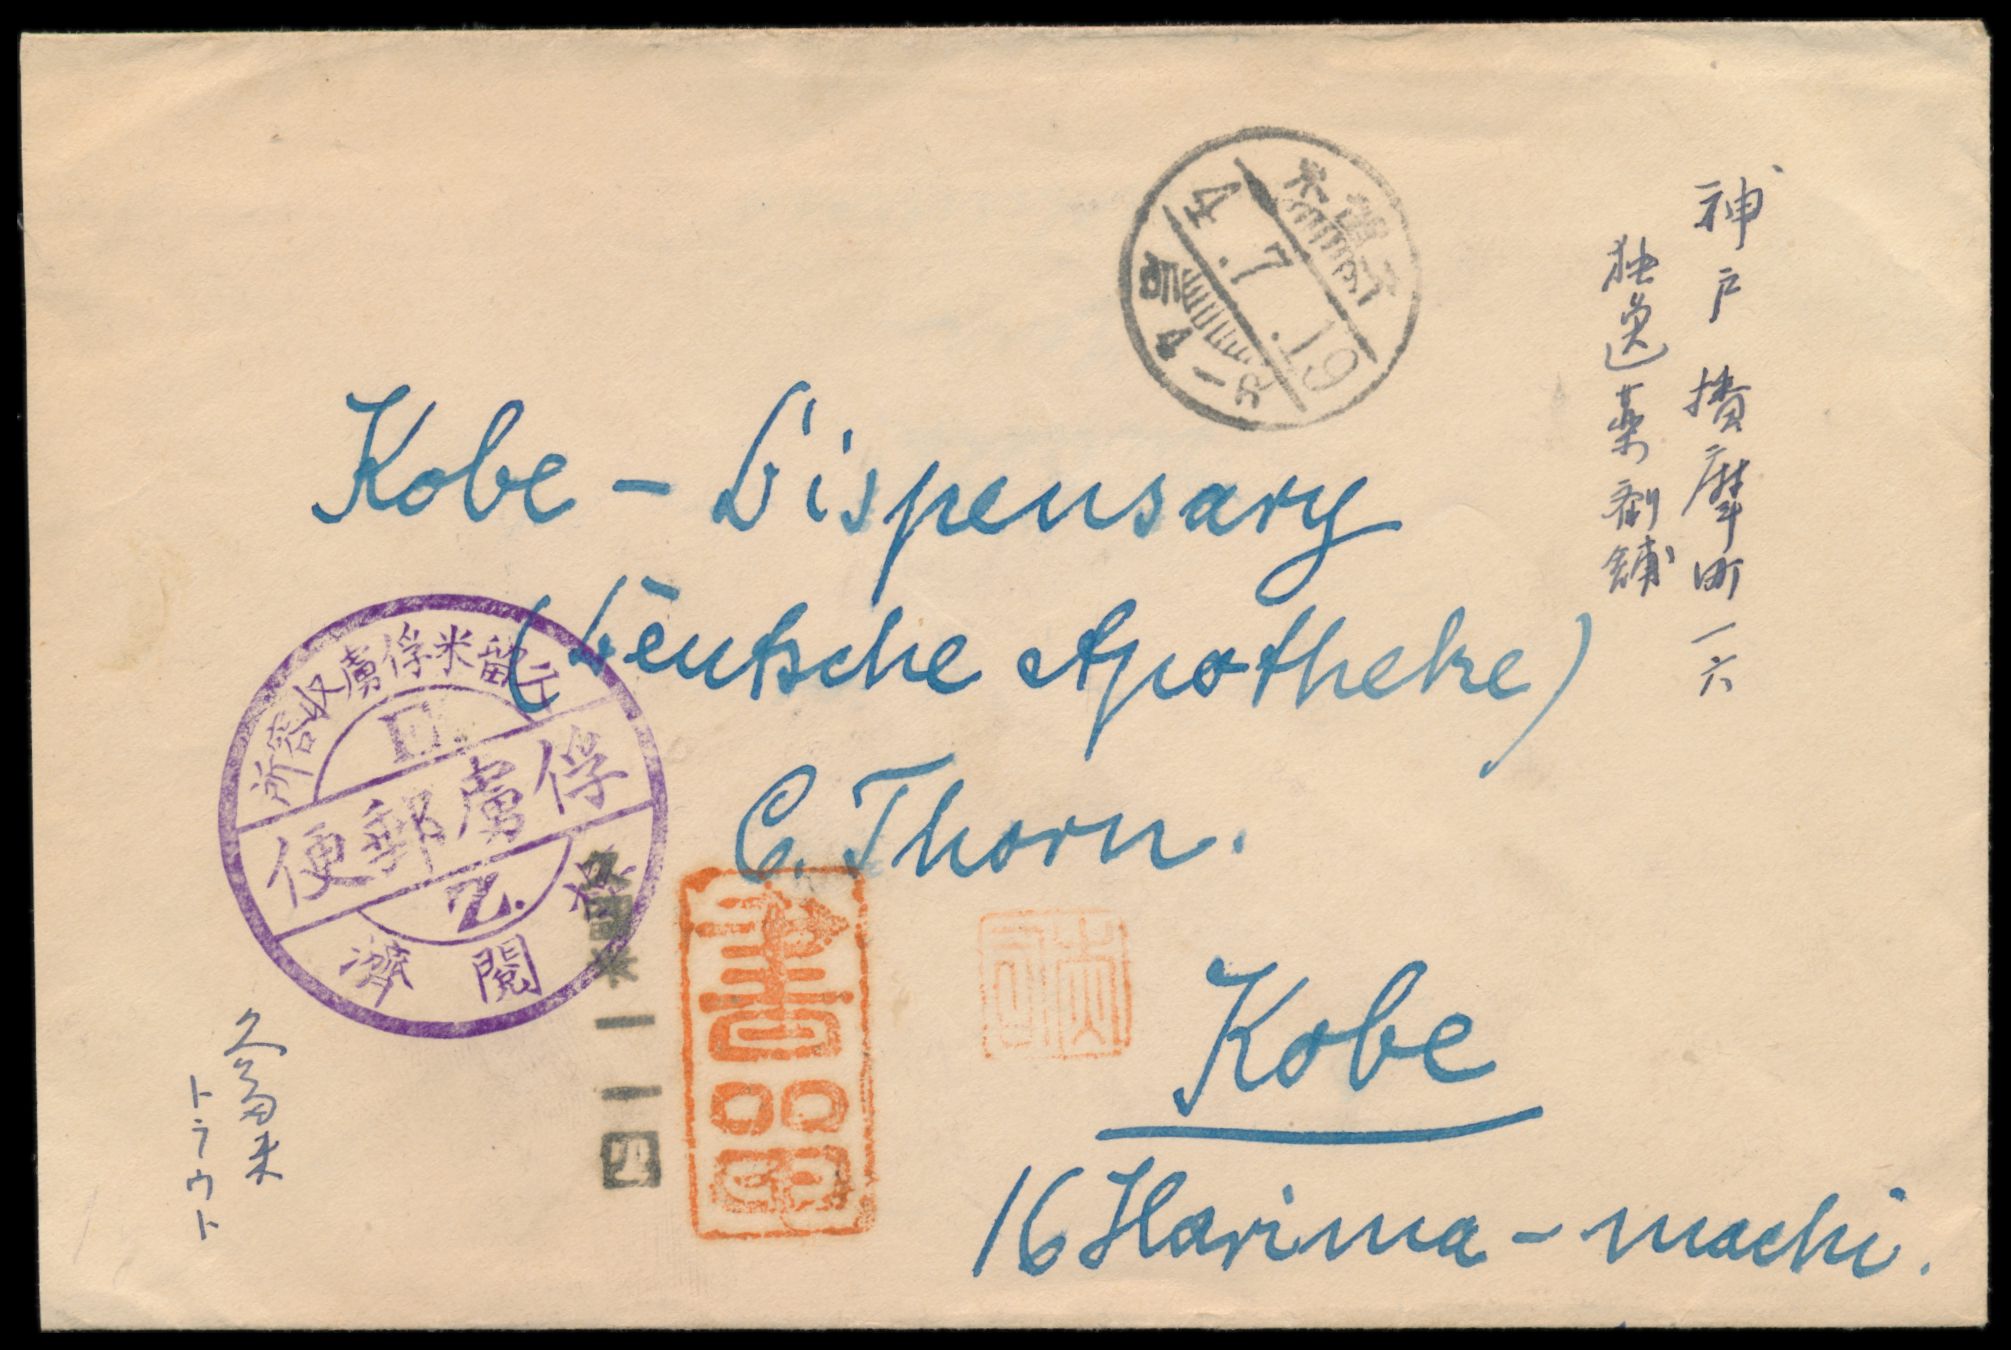 神戸播摩町一六
独逸薬剤舗
4.7.19
后4-8
Kobe-Dispensary
(Deutsche Apotheke)
C. Thorn.
Kobe
16 Harima-machi.
久留米俘虜収容所
II.
俘虜郵便
Z.
検閲済
久留米
一一
書留
久留米
トラウト